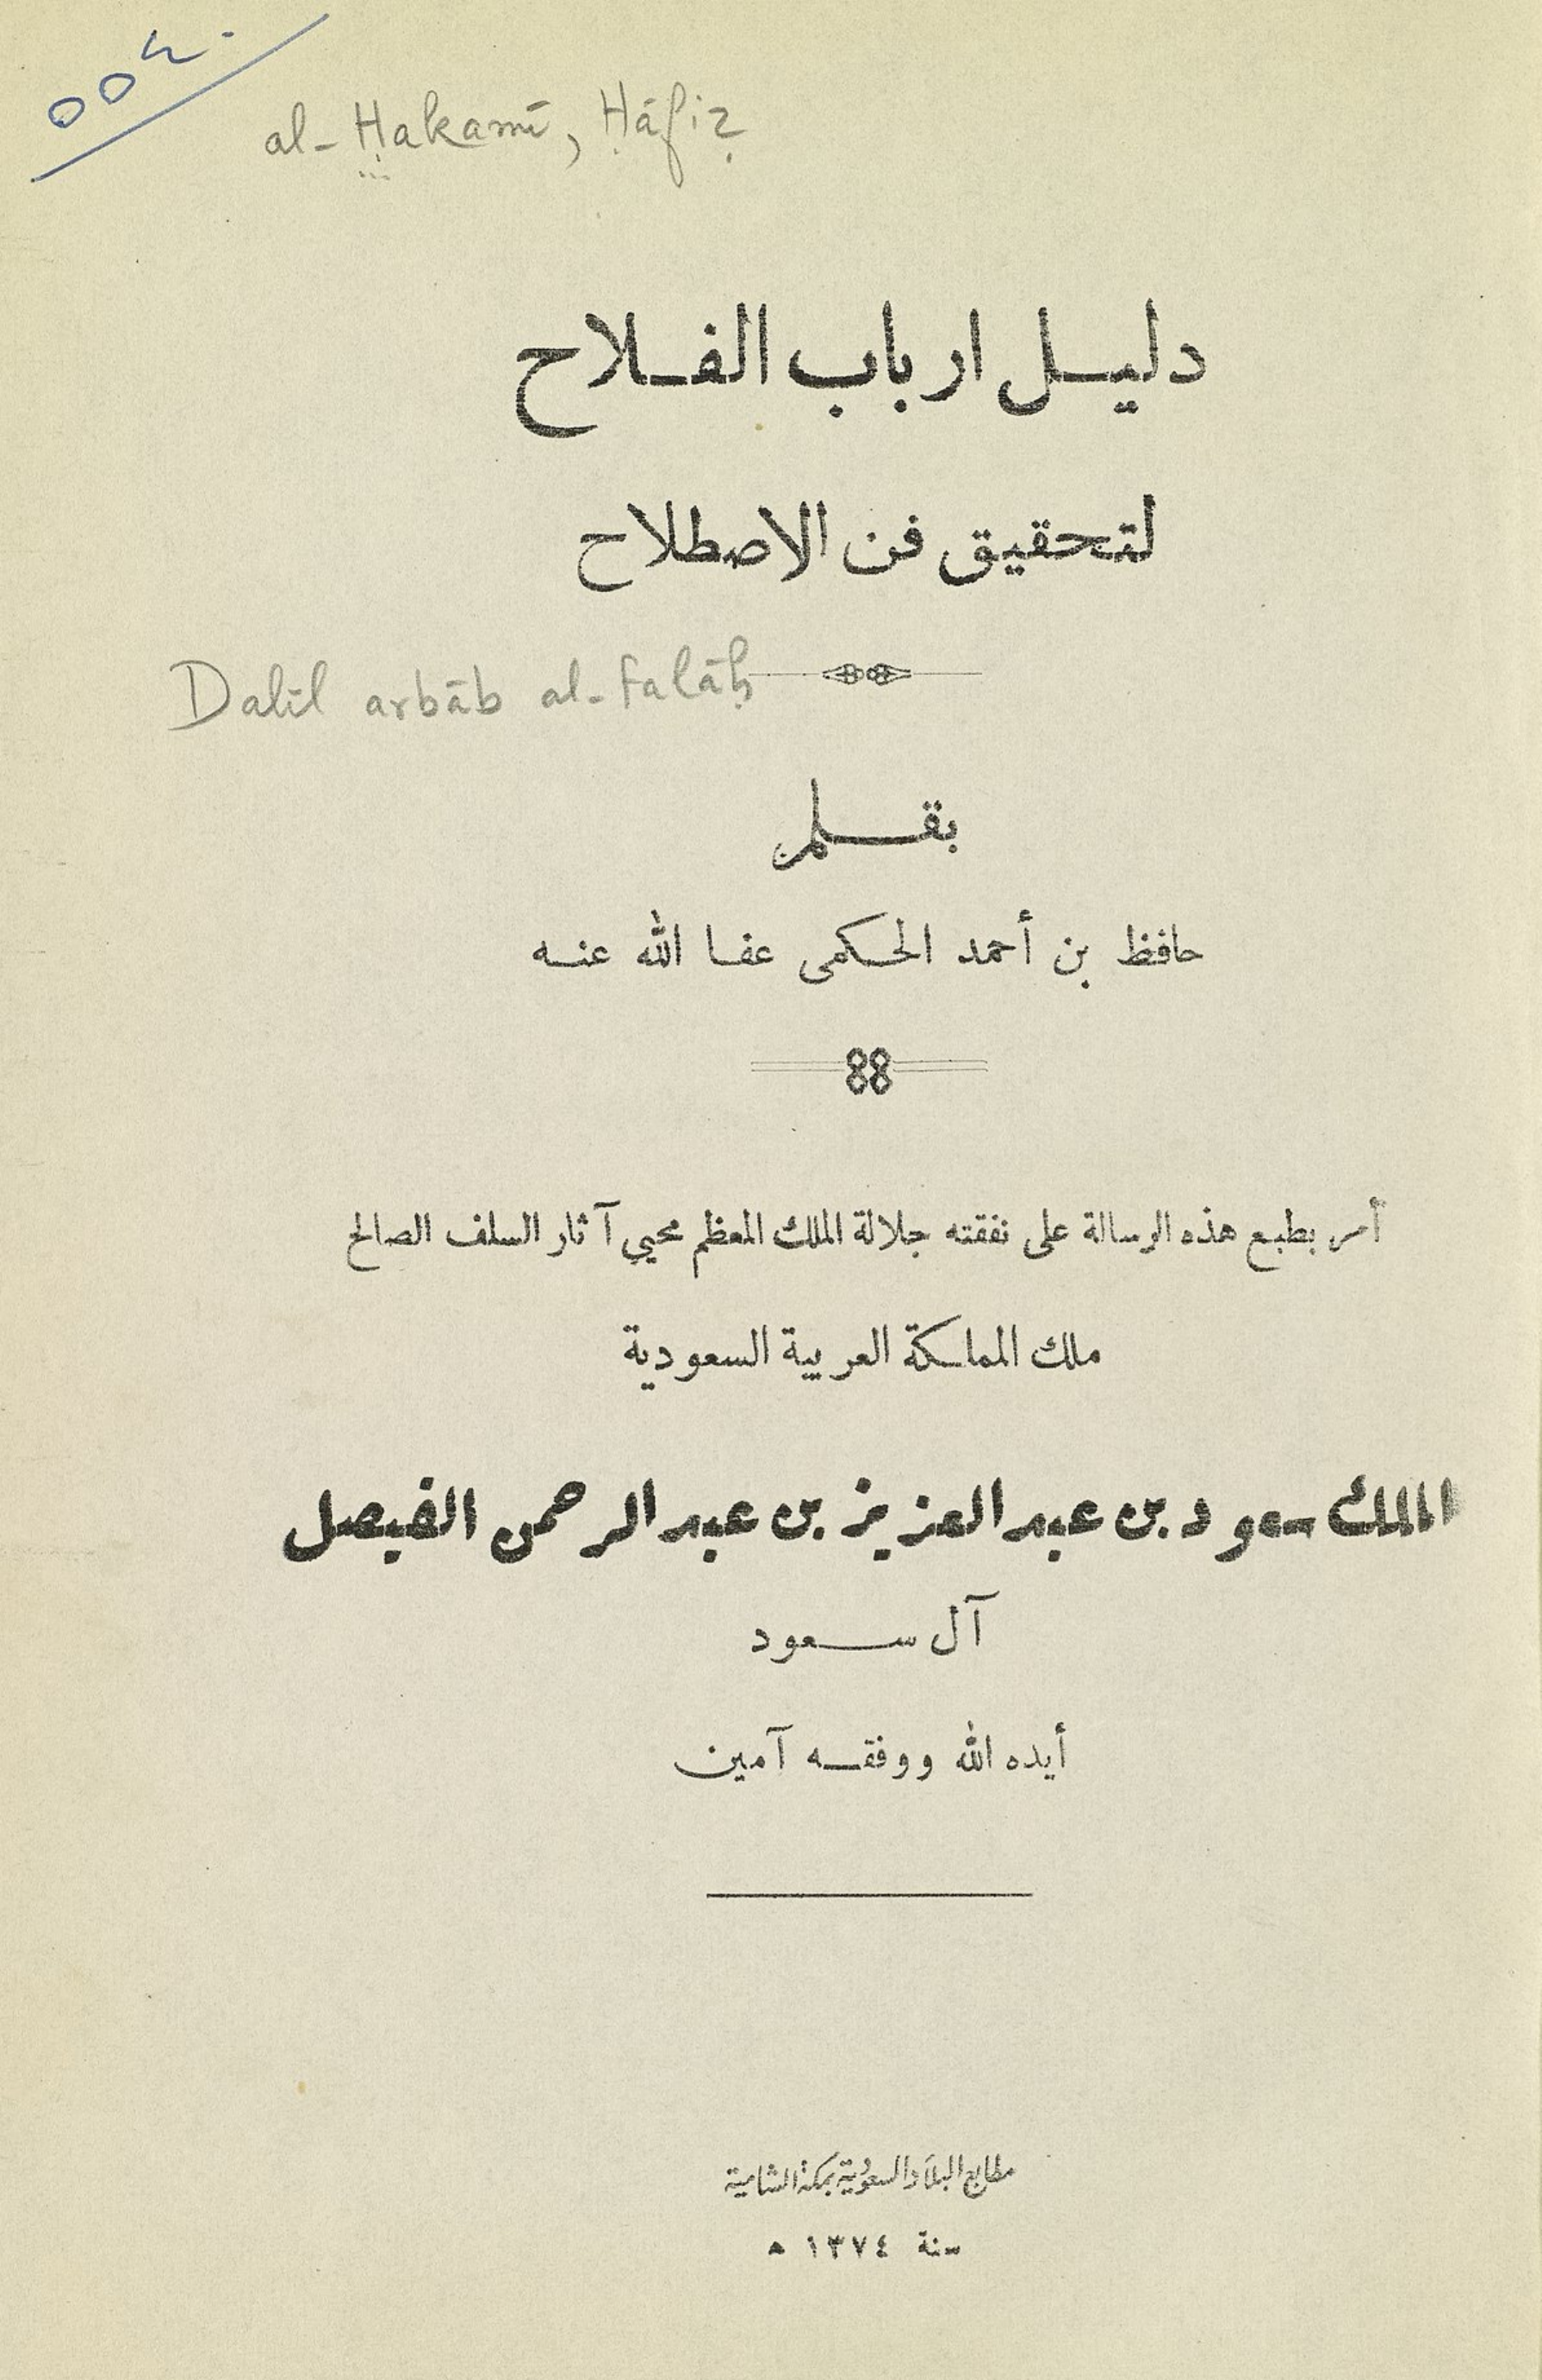 ٥٥٤٠
al-Ḥakamī, Ḥāfiẓ
دليل ارباب الفلاح
لتحقيق فن الاصطلاح
Dalīl arbāb al-falāḥ
بقلم
حافظ بن أحمد الحكمى عفا الله عنه
أمر بطبع هذه الرسالة على نفقته جلالة الملك المعظم محيي آثار السلف الصالح
ملك المملكة العربية السعودية
الملك سعود بن عبد العزيز بن عبد الرحمن الفيصل
آل سعود
أيده الله ووفقه آمين
مطابع البلاد السعودية بمكة الشامية
سنة ١٣٧٤ ه